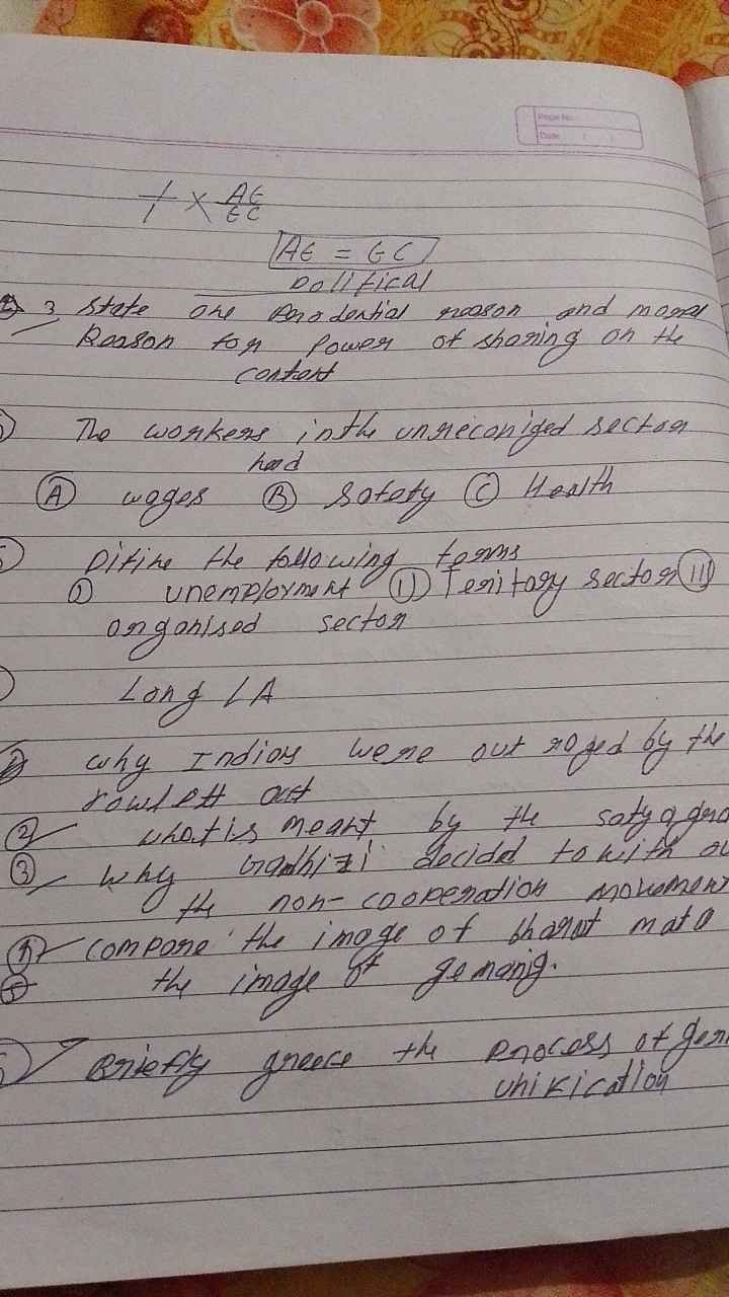 Page No.
Date / /
1/1 × AE/EC
AE = EC
Political
3 State one Prodential reason and moral
Reason for Power of sharing on the
content
The workers in the unreconized sector
had
(A) wages (B) Safety (C) Health
Difine the following terms
unemployment (II) Teritary sector (III)
organised sector
Long LA
why Indian were out raged by the
rowlett act
(2) what is meant by the satyagra
(3) why Gandhizi decided to with
the non-cooperation movement
compare the image of bharat mata
the image of gemanig.
Briefly greece the Process of ger
unification